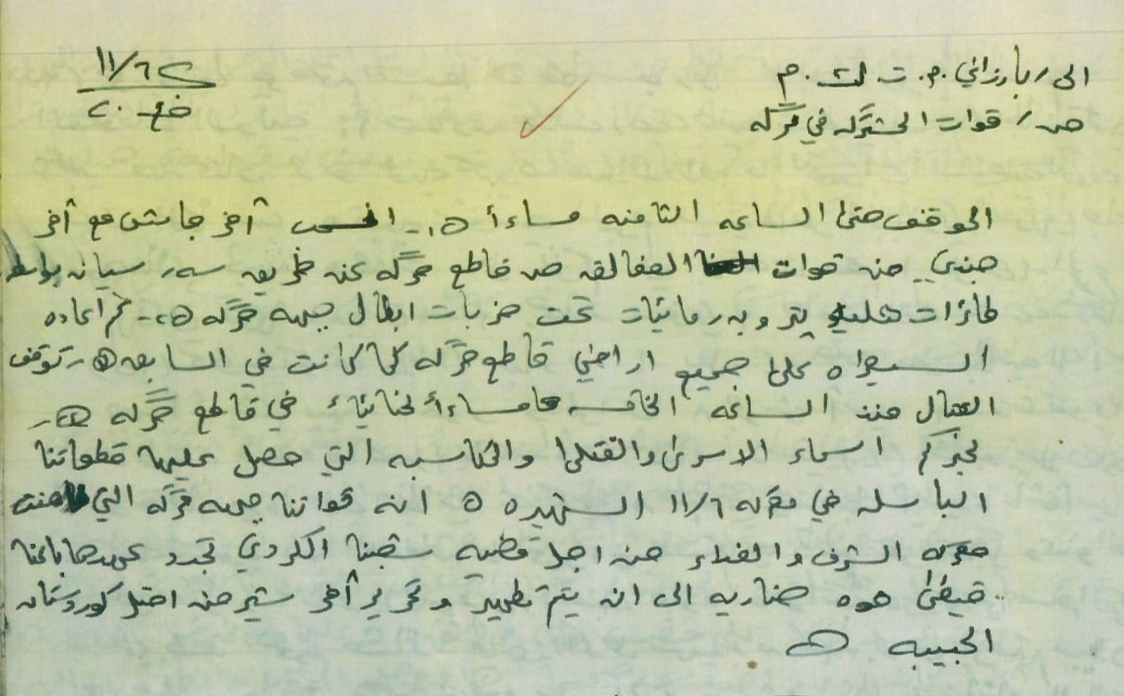 الى / بارزاني . م. ت. ك. م
من / قوات المشتركه في حركه
١١/٦
الموقف حتى الساعه الثامنه مساءأ ١- انسحب آخر جاش مع آخر
جندي من قوات المغالق من قاطع حركه عن طريق سيان
طائرات هليوبتر وبدرمائيات تحت ضربات ابطال جبهه حركه ٢- تم اعاده
السيطره على جميع اراضي قاطع حركه كما كانت في السابق توقف
القتال منذ الساعه الخامسه مساءأ في قاطع حركه
نخبركم اسماء الاسرى والقتلى والمكاسب التي حصل عليها قطعاتنا
الباسله في معركه ١١/٦ الشهيره ان قواتنا جبهه حركه التي خاضت
معركه الشرف والفداء من اجل قضيه شعبنا الكردي تجدد عهدها باننا
هذه ضاريه الى ان يتم تطهير وتحرير آخر شبر من كوردستان
الحبيبه